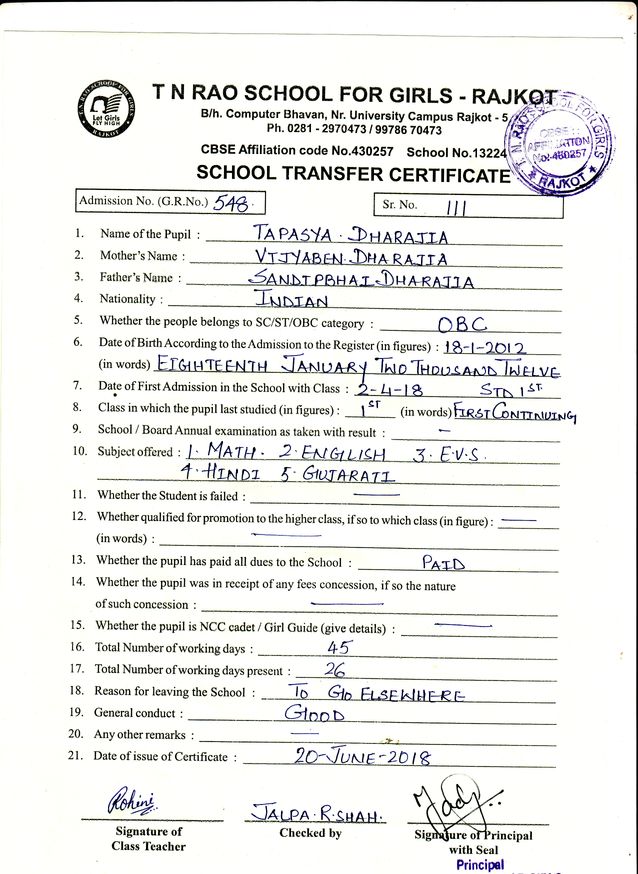 T. N. RAO SCHOOL FOR GIRLS
Let Girls
FLY HIGH
RAJKOT
T N RAO SCHOOL FOR GIRLS - RAJKOT
B/h. Computer Bhavan, Nr. University Campus Rajkot - 5
Ph. 0281 - 2970473 / 99786 70473
CBSE Affiliation code No.430257 School No.13224
T. N. RAO SCHOOL FOR GIRLS
CBSE
AFFILIATION
No:-430257
RAJKOT
SCHOOL TRANSFER CERTIFICATE
Admission No. (G.R.No.) 548. Sr. No. 111
1. Name of the Pupil : TAPASYA. DHARAJIA
2. Mother's Name : VIJYABEN. DHARAJIA
3. Father's Name : SANDIPBHAI. DHARAJIA
4. Nationality : INDIAN
5. Whether the people belongs to SC/ST/OBC category : OBC
6. Date of Birth According to the Admission to the Register (in figures) : 18-1-2012
(in words) EIGHTEENTH JANUARY TWO THOUSAND TWELVE
7. Date of First Admission in the School with Class : 2-4-18 STD 1ST.
8. Class in which the pupil last studied (in figures) : 1ST (in words) FIRST CONTINUING
9. School / Board Annual examination as taken with result : —
10. Subject offered : 1. MATH. 2. ENGLISH 3. E.V.S.
4. HINDI 5. GUJARATI
11. Whether the Student is failed : —
12. Whether qualified for promotion to the higher class, if so to which class (in figure) : —
(in words) : —
13. Whether the pupil has paid all dues to the School : PAID
14. Whether the pupil was in receipt of any fees concession, if so the nature
of such concession : —
15. Whether the pupil is NCC cadet / Girl Guide (give details) : —
16. Total Number of working days : 45
17. Total Number of working days present : 26
18. Reason for leaving the School : TO GO ELSEWHERE
19. General conduct : GOOD
20. Any other remarks : —
21. Date of issue of Certificate : 20-JUNE-2018
Rohini JALPA. R. SHAH.
Signature of Checked by Signature of Principal
Class Teacher with Seal
Principal